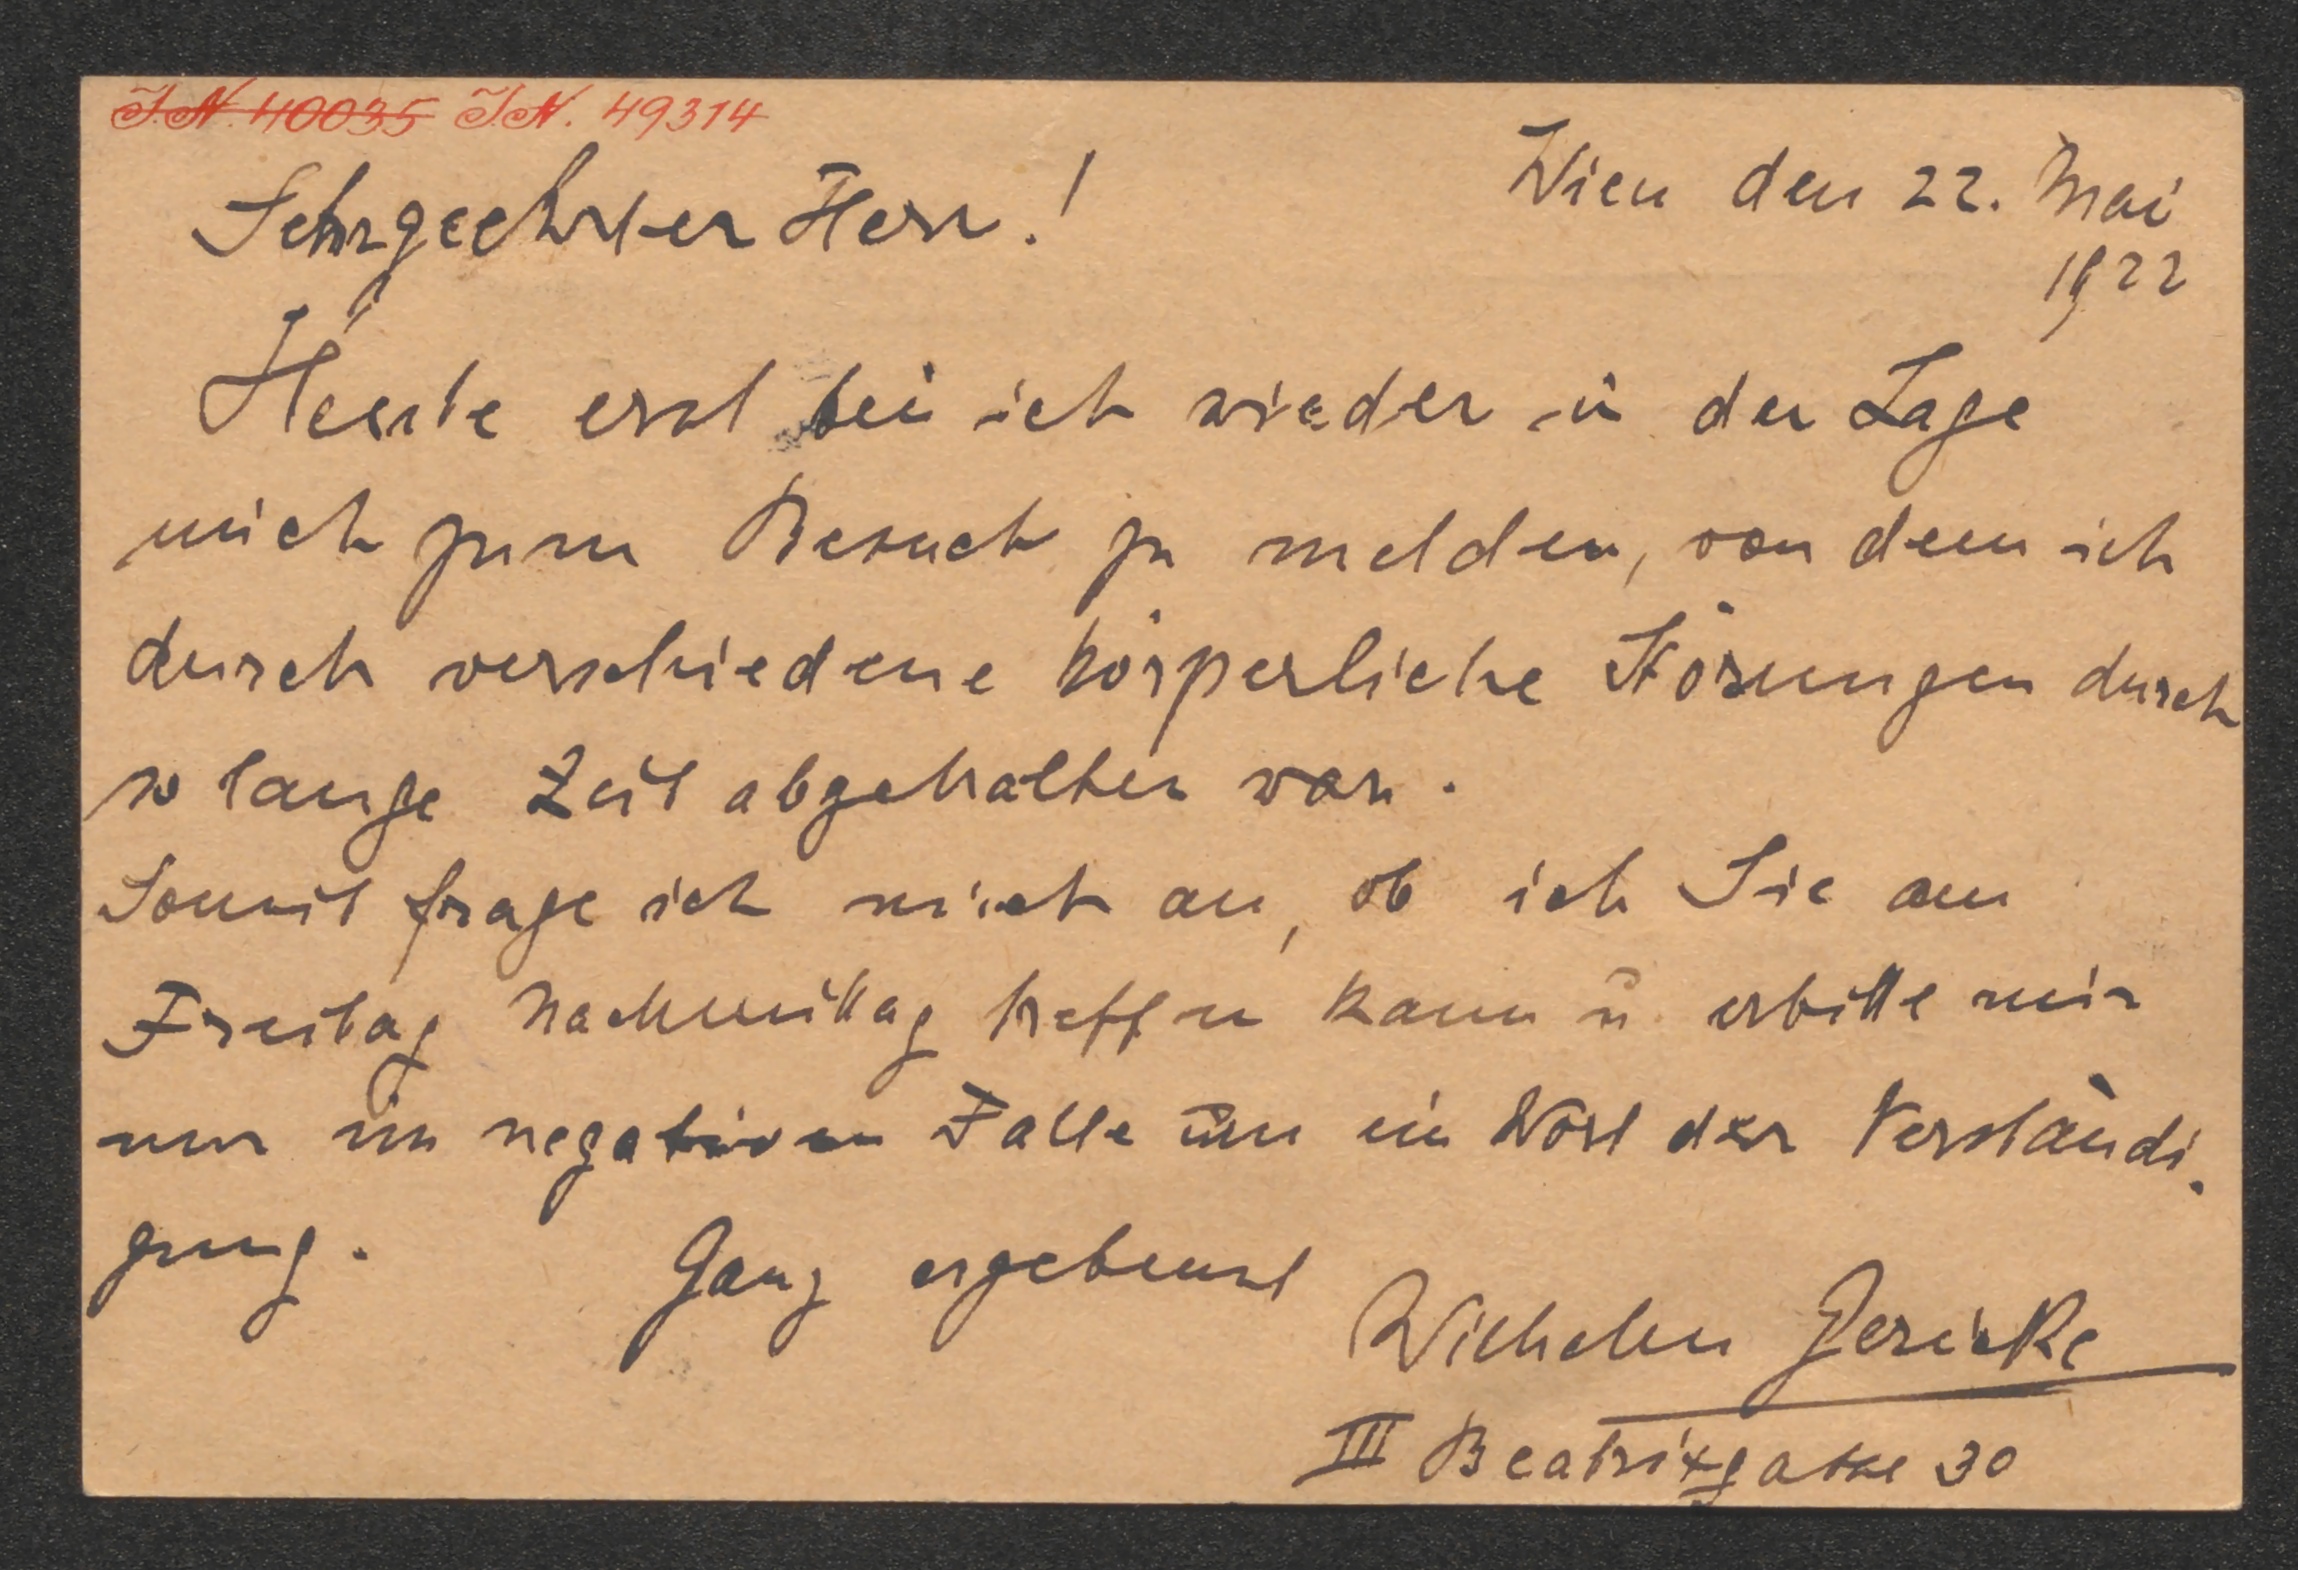 J.N. 40035 J.N. 49314
Wien den 22. Mai
1922
Sehrgeehrter Herr!
Heute erst bin ich wieder in der Lage
mich zum Besuch zu melden, von dem ich
durch verschiedene körperliche Störungen durch
so lange Zeit abgehalten war.
Somit frage ich mich an, ob ich Sie am
Freitag Nachmittag treffen kann u. erbitte mir
nur im negativen Falle um ein Wort der Verständi-
gung. Ganz ergebenst
Wilhelm Gericke
III Beatrixgasse 30